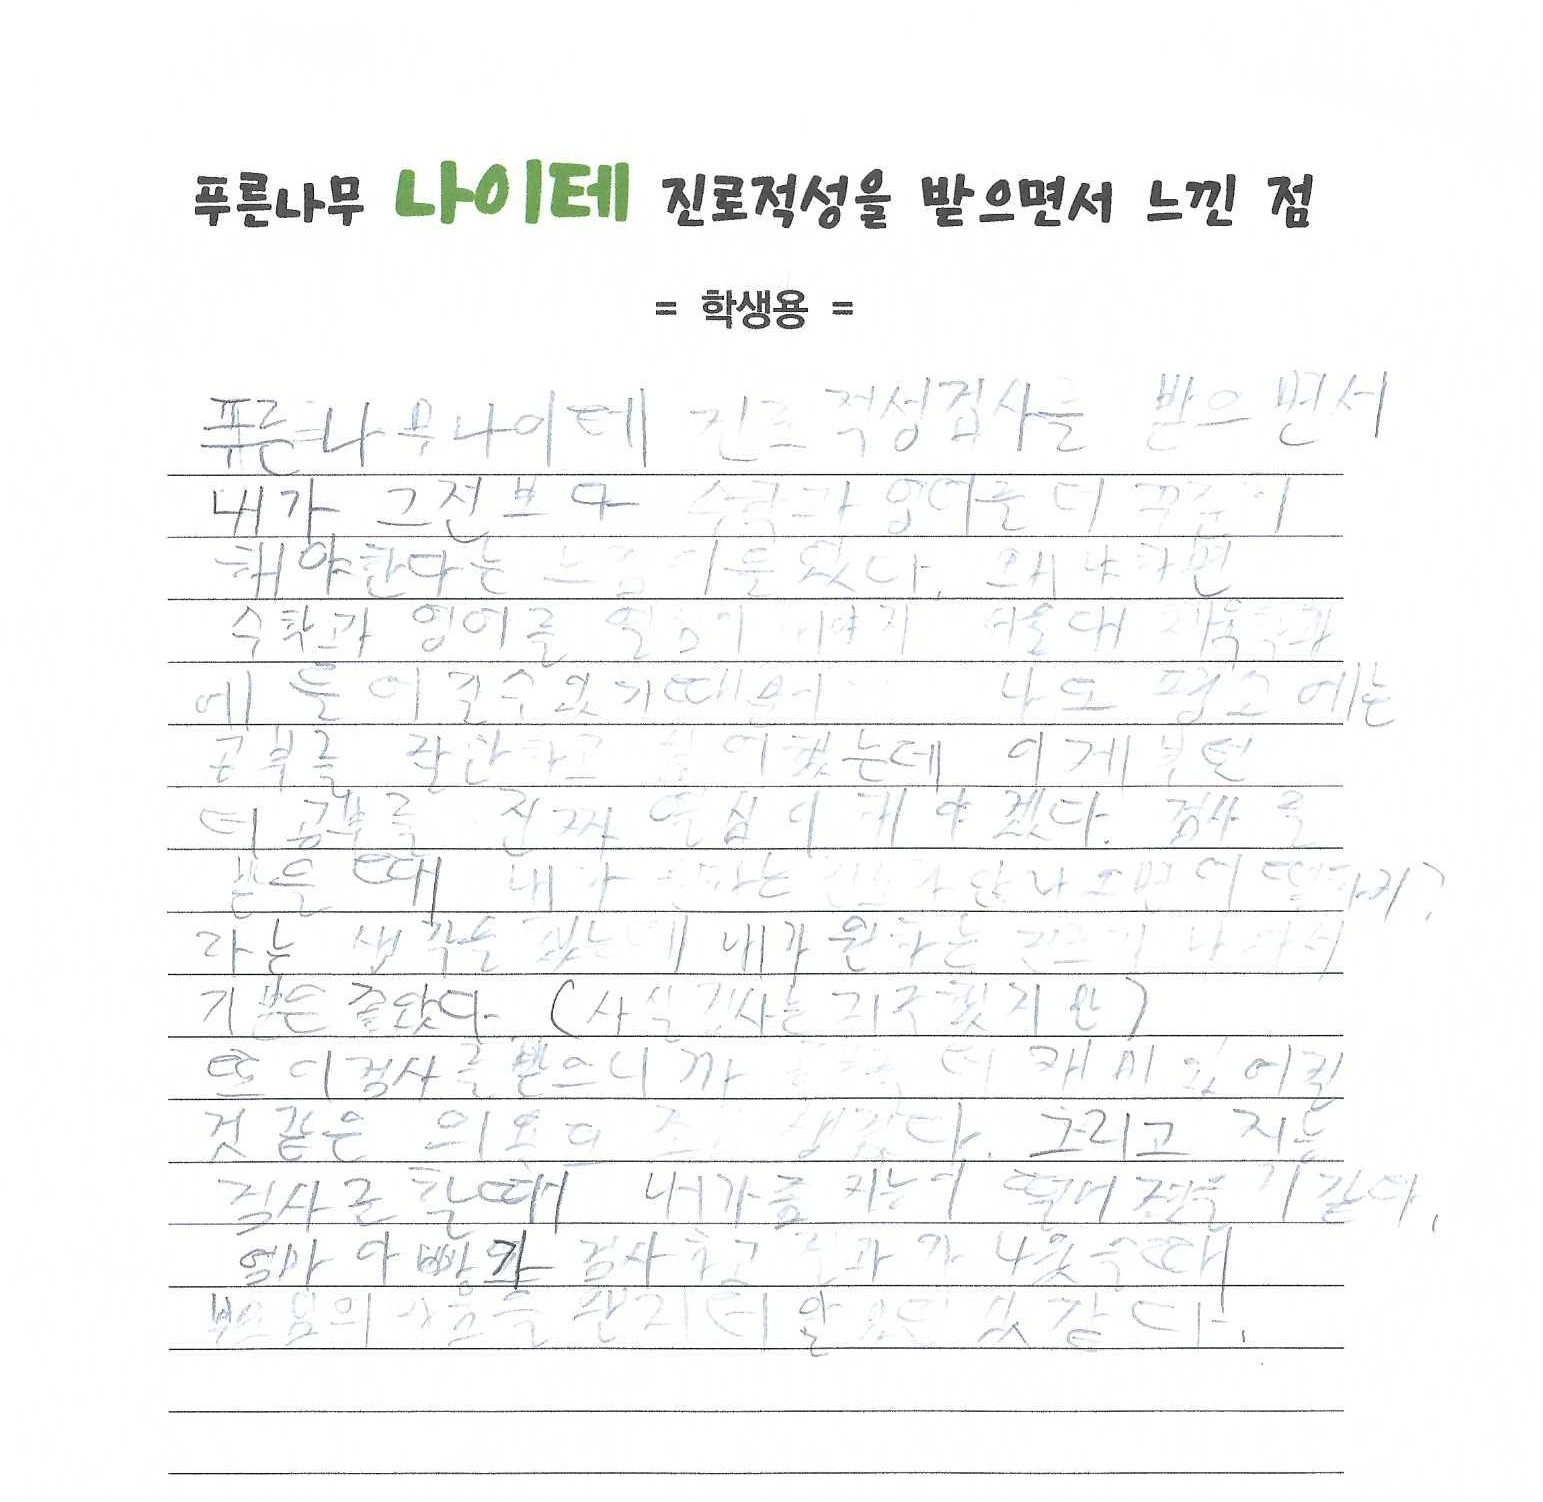 푸른나무 나이테 진로적성을 받으면서 느낀 점
= 학생용 =
푸른나무나이테 진로적성검사를 받으면서
내가 그전보다 수학과 영어를 더 꾸준히
해야한다는 느낌이 들었다. 왜냐하면
수학과 영어를 열심히 해야지 서울대 체육학과
에 들어갈수있기때문에 나도 평소에는
공부를 작간하고 놀이했는데 이게부턴
더 공부를 진짜 열심이 해야겠다. 검사를
받을 때 내가 원하는 진로가 안나오면 어떡하지?
라는 생각을 했는데 내가 원하는 진로가 나와서
기분은 좋았다. (사실 검사는 지루했지만)
또 이검사를 받으니까 더 재미있어질
것 같은 의욕도 생겼다. 그리고 지능
검사를 할때 내가 지능이 떨어
엄마 아빠가 검사하고 결과가 나왔을때
부모님의 마음을 더 알 것 같다.